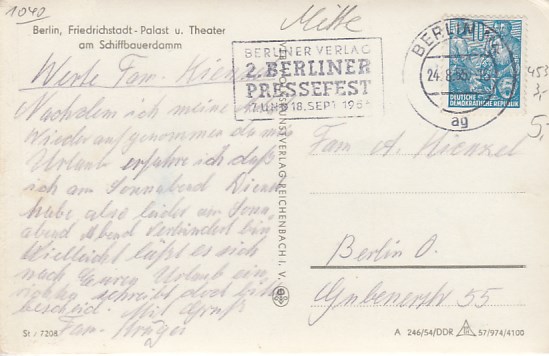 1040
Mitte
Berlin, Friedrichstadt-Palast u. Theater
am Schiffbauerdamm
BERLINER VERLAG
2. BERLINER
PRESSEFEST
17. UND 18. SEPT. 195
BERLIN
24.8.55
ag
DEUTSCHE
DEMOKRATISCHE REPUBLIK
453
3,-
5,-
Werte Fam. Kienzel
Nachdem ich meine
wieder aufgenommen da
Urlaub erfahre ich daß
ich am Sonnabend Dienst
habe also leider am Sonn,
abend Abend verhindert bin
Vielleicht läßt es sich
nach Eurem Urlaub ein,
richten schreibt doch bitte
bescheid. Mit Gruß
Fam. Krüger
KUNSTVERLAG REICHENBACH I. V.
Fam A. Kienzel
Berlin O.
Gubenerstr 55
St / 7208
A 246/54/DDR 57/974/4100